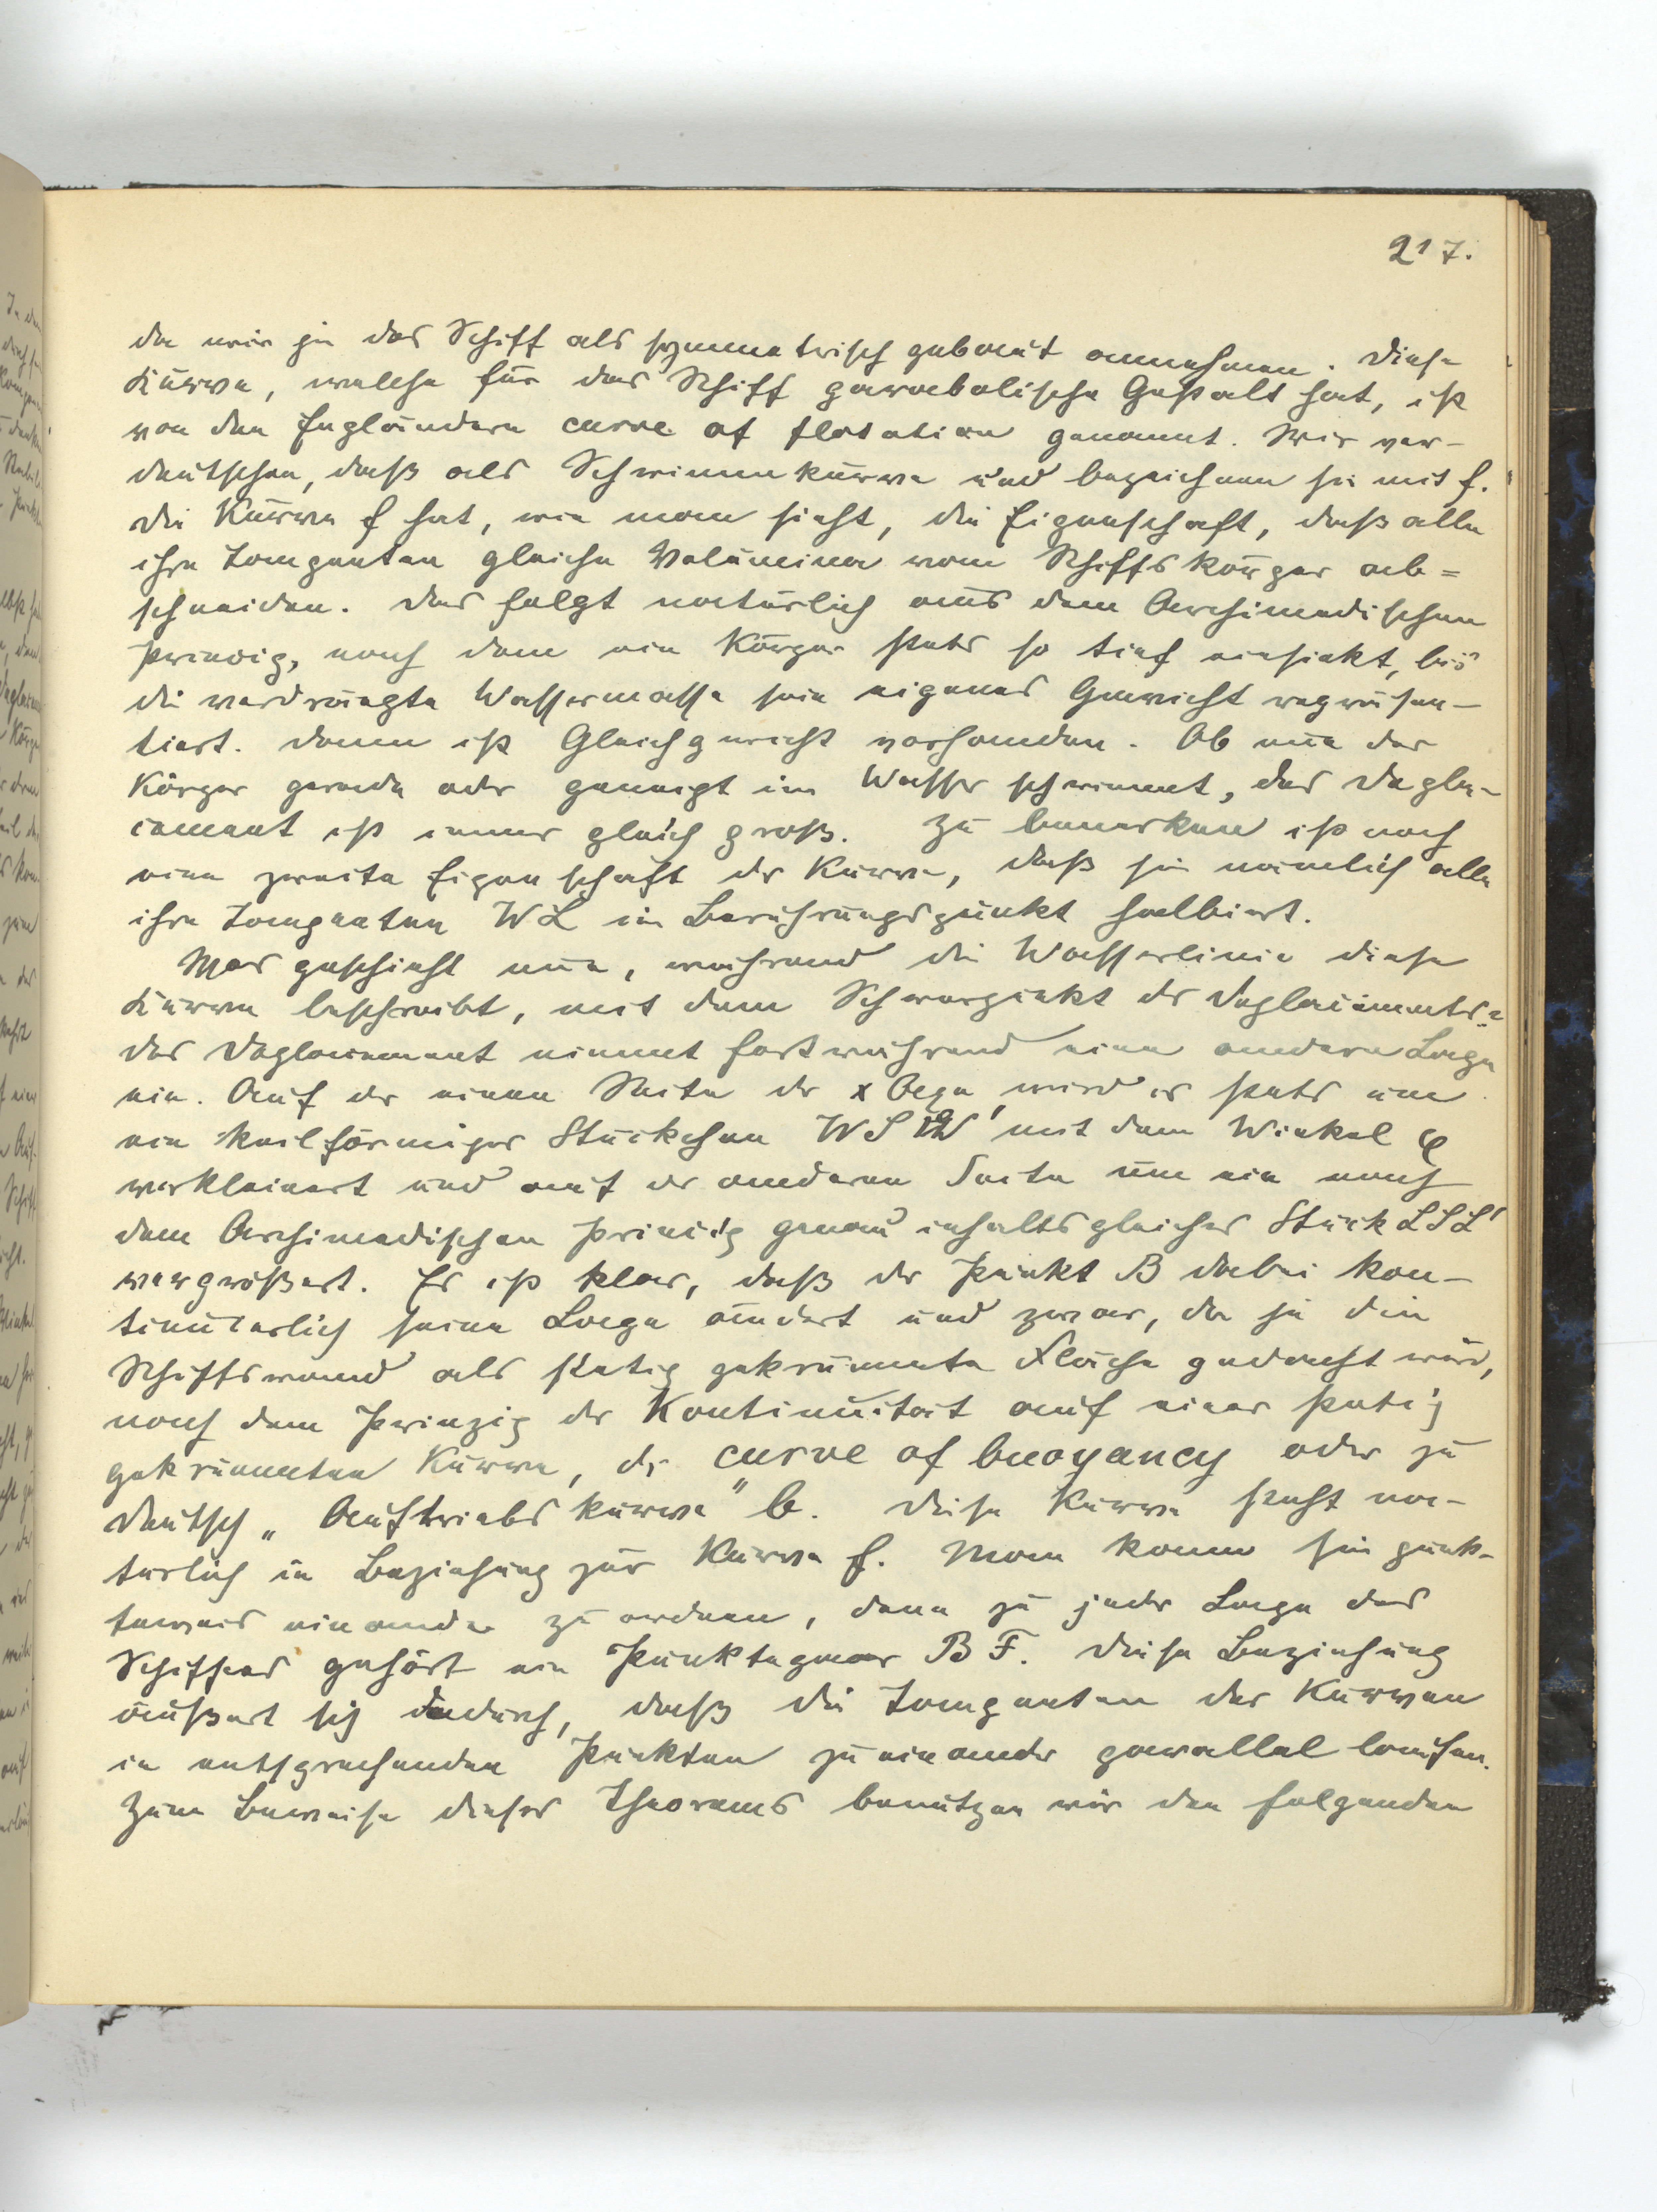 217.
da wir ja das Schiff als symmetrisch gebaut annehmen. Diese
Kurve, welche für das Schiff parabolische Gestalt hat, ist
von den Engländern curve of flotation genannt. Wir ver-
deutschen, daß als Schwimmkurve und bezeichnen sie mit f.
Die Kurve f hat, wie man sieht, die Eigenschaft, daß alle
ihre Tangenten gleiche Volumina vom Schiffskörper ab=
schneiden. Das folgt natürlich aus dem Archimedischen
Prinzip, nach dem ein Körper stets so tief einsinkt, bis
die verdrängte Wassermasse sein eigenes Gewicht repräsen-
tiert. Dann ist Gleichgewicht vorhanden. Ob nun der
Körper gerade oder geneigt im Wasser schwimmt, das Depla-
cement ist immer gleich groß. Zu bemerken ist noch
eine zweite Eigenschaft der Kurve, daß sie nämlich alle
ihre Tangenten WL im Berührungspunkt halbiert.
Was geschieht nun, während die Wasserlinie diese
Kurve beschreibt, mit dem Schwerpunkt des Deplacements?
Das Deplacement nimmt fortwährend eine andere Lage
ein. Auf der einen Seite der x Axe wird es stets um
ein keilförmiges Stückchen WSW' mit dem Winkel φ
verkleinert und auf der anderen Seite um ein nach
dem Archimedischen Princip genau inhaltsgleiches Stück LSL'
vergrößert. Es ist klar, daß der Punkt B dabei kon-
tinuierlich seine Lage ändert und zwar, da ja die
Schiffswand als stetig gekrümmte Fläche gedacht wird,
nach dem Prinzip der Kontinuität auf einer stetig
gekrümmten Kurve, der curve of buoyancy oder zu
deutsch „Auftriebskurve" b. Diese Kurve steht na-
türlich in Beziehung zur Kurve f. Man kann sie punk-
teweis einander zuordnen, denn zu jeder Lage des
Schiffes gehört ein Punktepaar B F. Diese Beziehung
äußert sich dadurch, daß die Tangenten der Kurven
in entsprechenden Punkten zu einander parallel laufen.
Zum Beweise dieses Theorems benutzen wir den folgenden